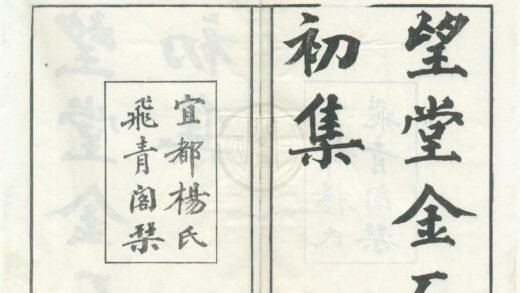 望堂金石
初集
宜都楊氏
飛青閣栞